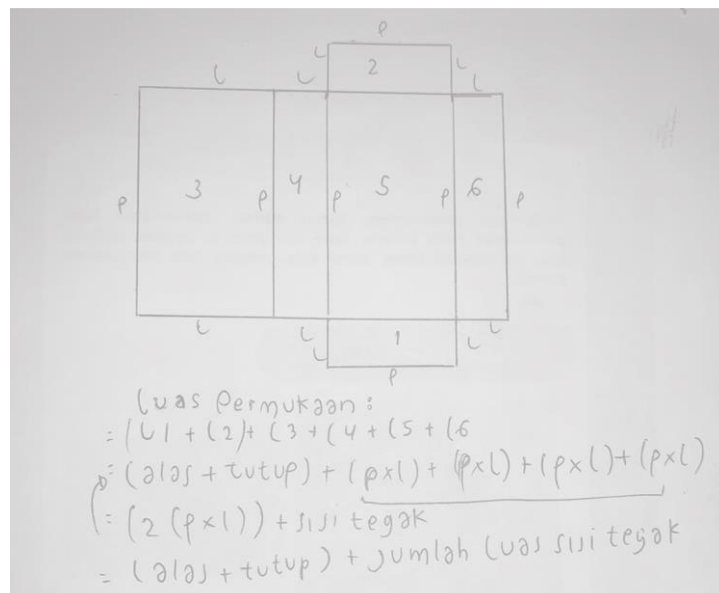 P
L L
2
L L L
3 4 5 6
P P P P P
L L L
L 1 L
P
Luas Permukaan :
= (L1 + L2) + L3 + L4 + L5 + L6
= (alas + tutup) + (pxl) + (pxl) + (pxl) + (pxl)
= (2 (pxl)) + sisi tegak
= (alas + tutup) + Jumlah Luas sisi tegak